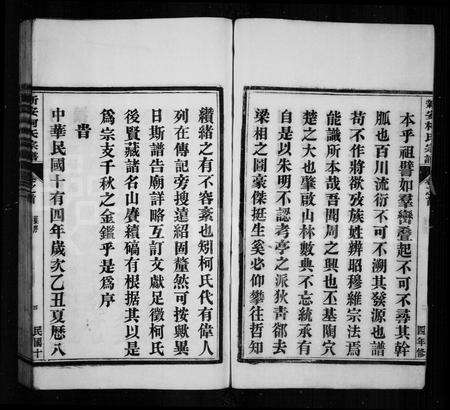 本乎祖譬如羣巒疊起不可不尋其幹
脈也百川流衍不可不溯其發源也譜
苟不作將欲敘族姓辨昭穆維宗法焉
能識所本哉吾閭周之興也丕基陶穴
楚之大也肇啟山林數典不忘統承有
自是以朱明不認考亭之派狄青卻去
梁相之圖豪傑挺生奚必仰攀往哲知
纘緒之有不容紊也矧柯氏代有偉人
列在傳記旁搜遠紹固釐然可按歟異
日斯譜告廟詳略互訂文獻足徵柯氏
後賢藏諸名山賡續稿有根據其以是
爲宗支千秋之金鑑乎是爲序
昔
中華民國十有四年歲次乙丑夏曆八
新安柯氏宗譜
卷之首
新安柯氏宗譜
卷之首
四年修
民國十